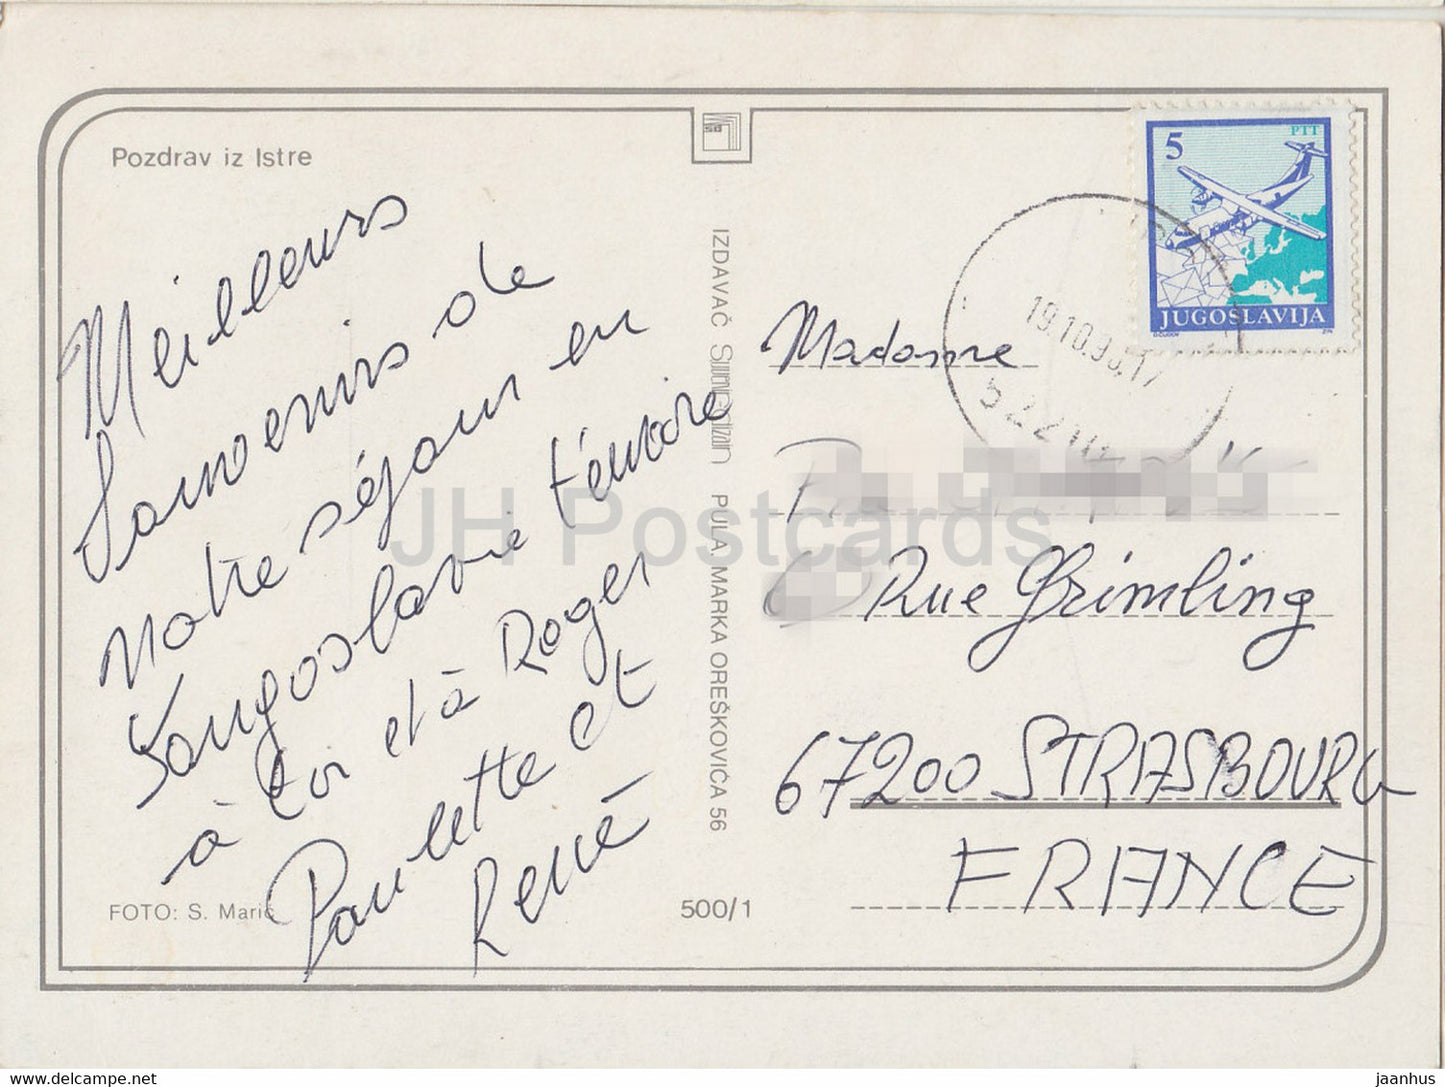 Pozdrav iz Istre
Meilleurs
Souvenirs de
notre séjour en
Yougoslavie
à toi et à Roger
Paulette et
René
FOTO: S. Marić
IZDAVAČ PULA, MARKA OREŠKOVIĆA 56
500/1
5
PTT
JUGOSLAVIJA
19.10.9
Madame
Rue Grimling
67200 STRASBOURG
FRANCE
JH Postcards
delcampe.net
jaanhus